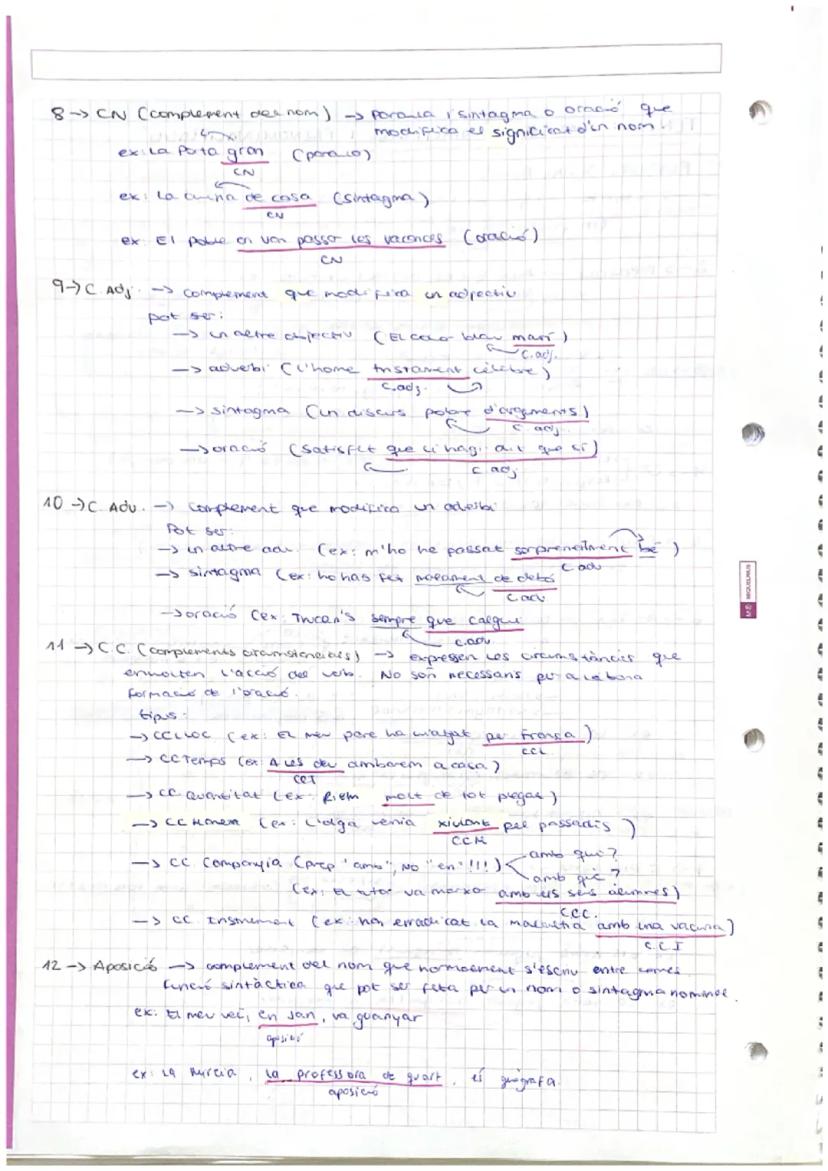 8 -> CN (complement del nom) -> paraula, sintagma o oració que
modifica el significat d'un nom.
ex: La Porta gran (paraula)
CN
ex: La cuina de casa (sintagma)
CN
ex: El poble on van passar les vacances (oració)
CN
9 -> C. Adj. -> complement que modifica un adjectiu
pot ser:
-> un altre adjectiu (El color blau marí)
C. adj.
-> adverbi (L'home tristament cèlebre)
C. adj.
-> sintagma (un discurs pobre d'arguments)
C. adj.
-> oració (satisfet que li hagi dit que sí)
C. adj
10 -> C. Adv. -> complement que modifica un adverbi
Pot ser:
-> un altre adv. (ex: m'ho he passat sorprenentment bé)
C. adv
-> sintagma (ex: ho has fet malament de debò
C. adv
-> oració (ex: Truca'n's sempre que calgui
C. adv
11 -> C.C. (complements circumstancials) -> expressen les circumstàncies que
envolten l'acció del verb. No són necessaris per a la bona
formació de l'oració.
tipus:
-> CC LLOC (ex: El meu pare ha viatjat per França)
CCL
-> CC Temps (ex: A les deu arribarem a casa)
CCT
-> CC Quantitat (ex: Riem molt de tot plegat)
-> CC Manera (ex: L'olga venia xiulant pel passadís)
CCM
-> CC Companyia (prep "amb", NO "en"!!!) amb qui?
amb què?
(ex: El tutor va marxar amb els seus alumnes)
CCC.
-> CC. Instrument (ex: han erradicat la malaltia amb una vacuna)
C.C.I
12 -> Aposició -> complement del nom que normalment s'escriu entre comes.
Funció sintàctica que pot ser feta per un nom o sintagma nominal.
ex: El meu veí, en Joan, va guanyar
aposició
ex: La Núrcia, la professora de quart, és geògrafa.
aposició
MIQUELRIUS